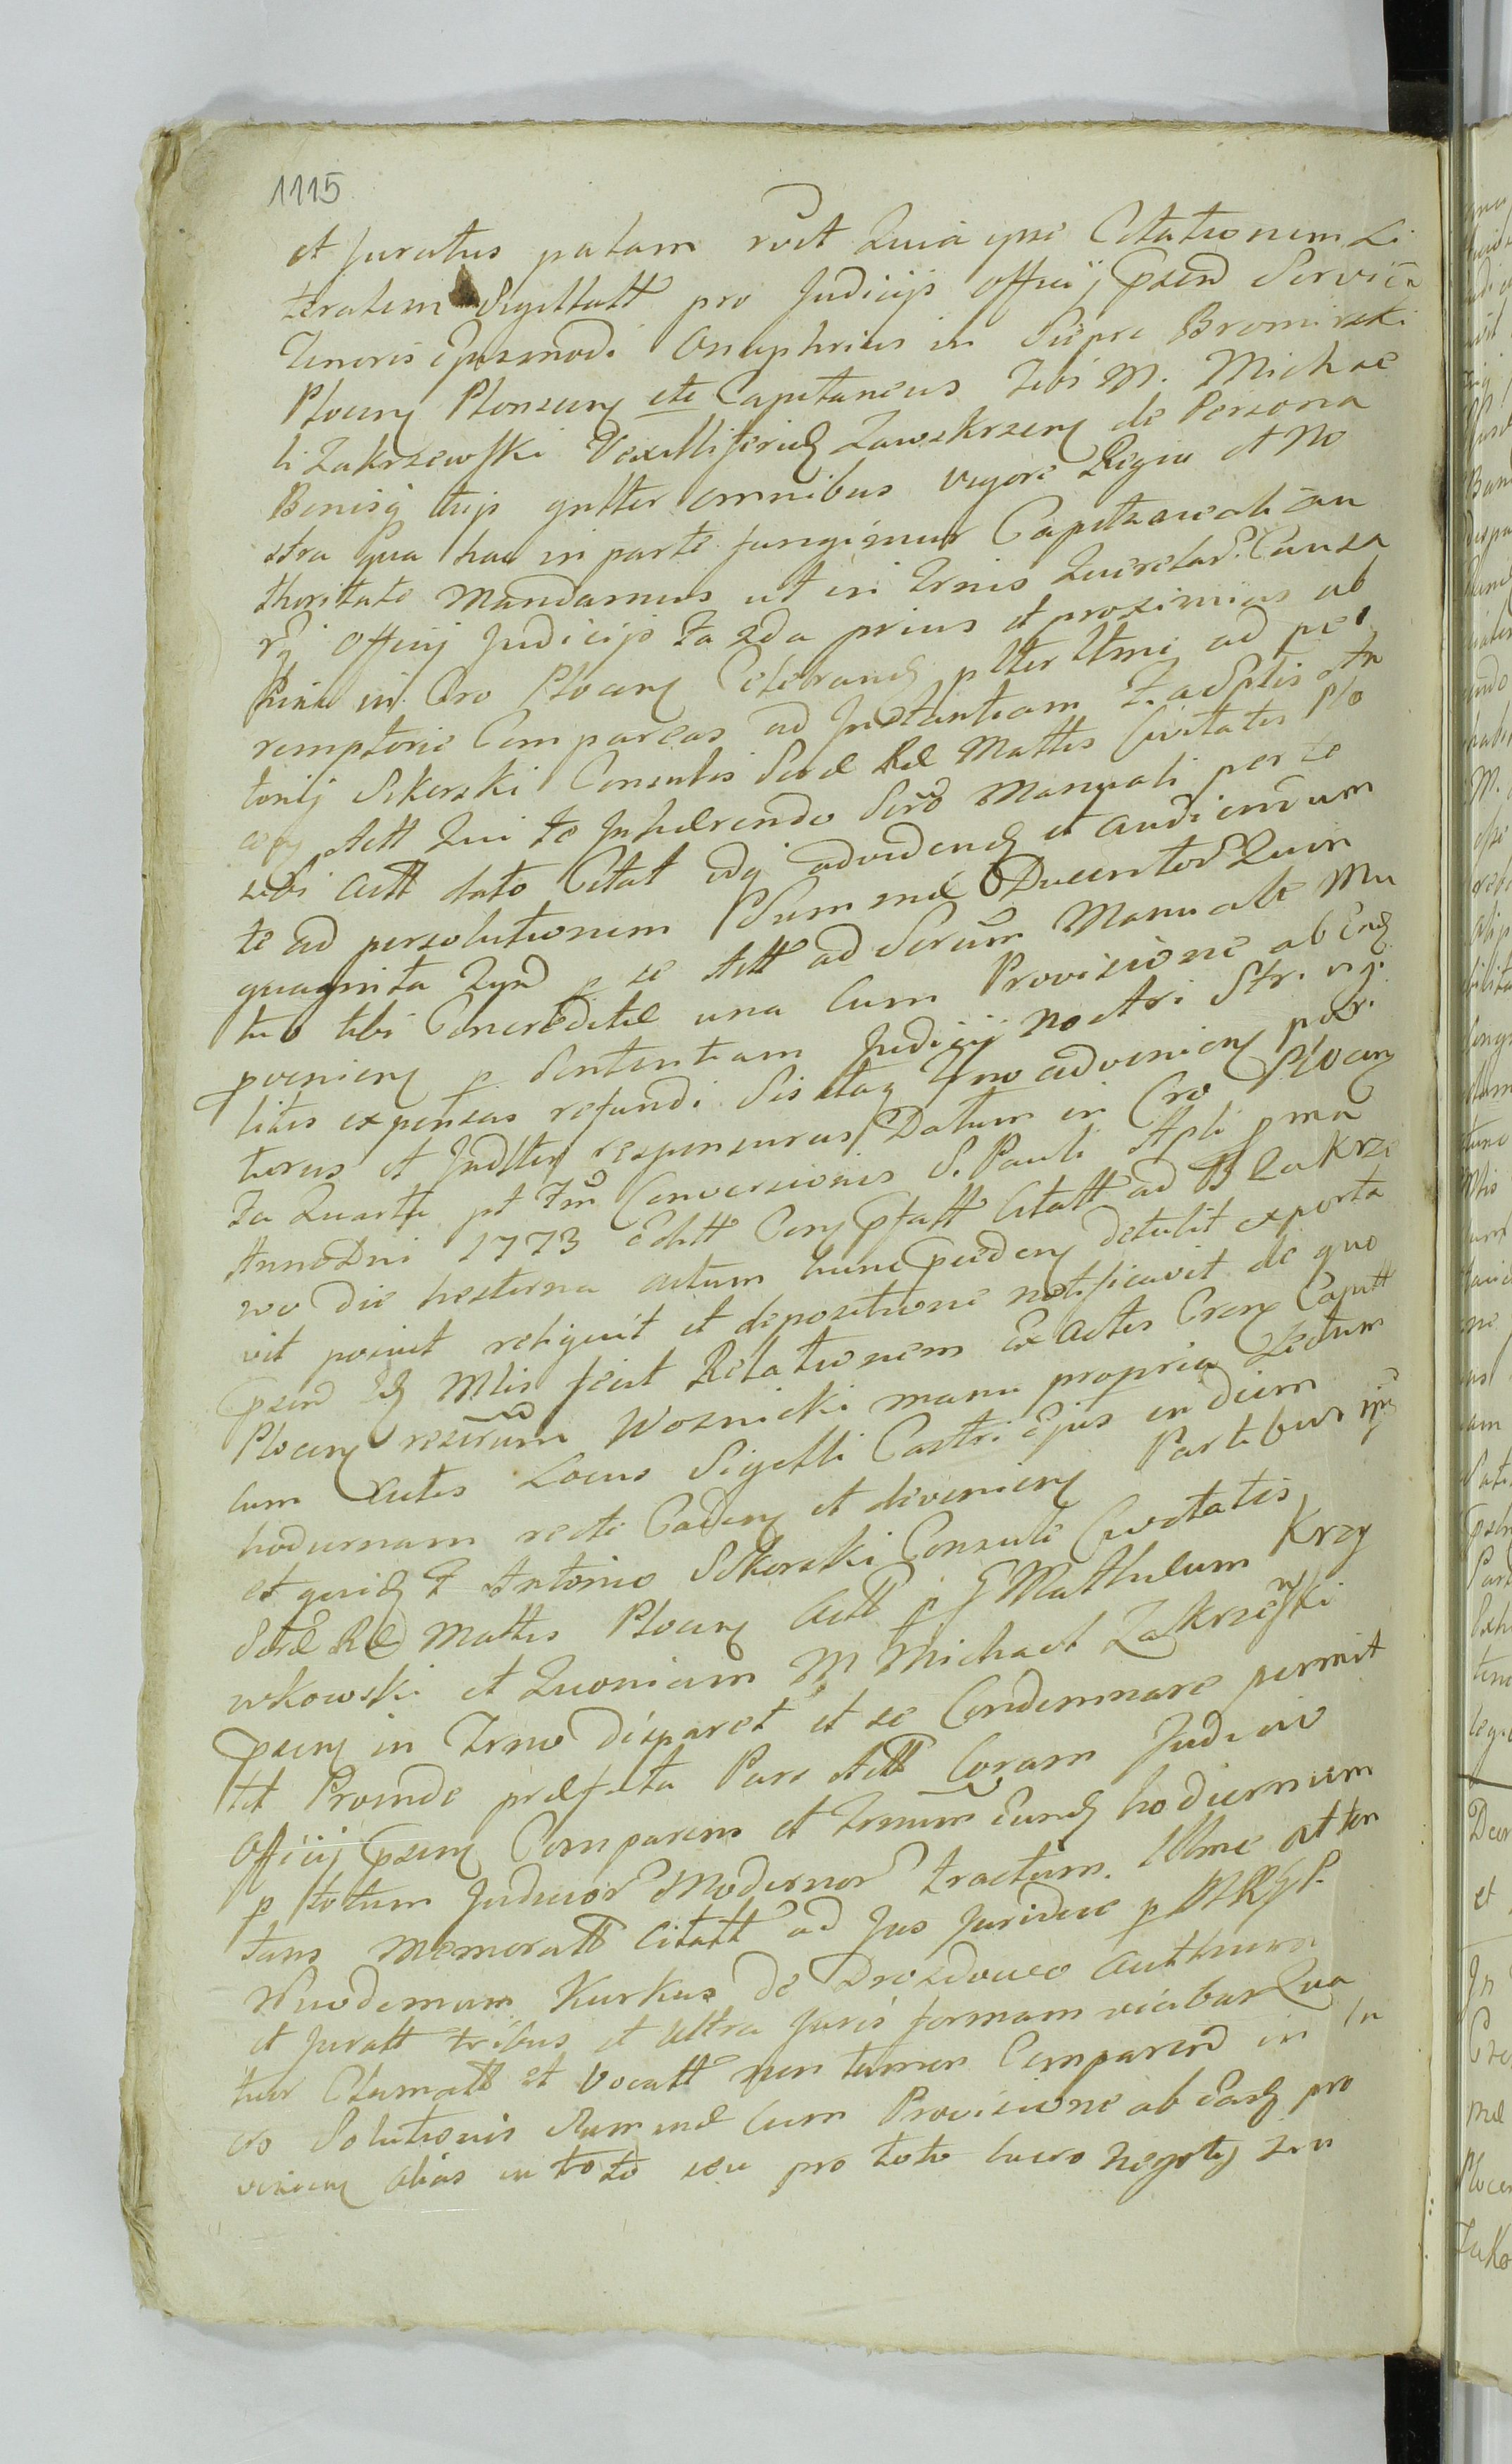 1115
et Juratus palam rõit Quia ipse Citationem Li
teralem Sigillatt pro Judicijs officij psend Servica
Tenoris ejusmodi Onuphrius in Siepre Bromirski
Plocen Plonscen etc Capitaneus Tibi M. Michae
li Zakrzewski Vexilliferid Zawskrzen de Persona
Bonisq tuis gntter omnibus vigore Regia et No
stra qua hac in parte fungimur Capitaneali au
thoritate Mandamus ut in Trnis Querelar Causa
rq officij Judicijs ta 2da prius et proximius ab
hinc in Cro Plocen Celebrand ptter ltmi ad pe
remptorie Compareas ad Instantiam F. adSptis An
tonij Sikorski Consulis Sacae Rae Mattis Civitatis Plo
cen Actt Qui te Inhaerendo Scrõ Manuali per te
sibi actt dato Citat idq advidend et audiendum
te ad persolutionem Summae Ducentor Quin
quaginta Tynf p te Actt ad Scrum Manuale Mu
tuo tibi Concreditae una Cum Provisione ab Ead
provenien p Sententiam Judicij nostri Stringi
litis expensas refundi Sis itaq Trno advenien pari
turus et Judtter responsurus Datum in Cro Plocen
Fa Quarta pt Fm Conversionis S. Pauli Apli pma
Anno Dni 1773 Editt Cony Pfatt Citatt ad B Zakrze
wo die hesterna actum hunc peeden detulit exporta
vit posuit reliquit et depositione notificavit de quo
psend Ed Mlis fecit Relationem Ex Actis Cren Capitt
Plocen rescrum Woznicki manu propria Lectum
cum Actis Locus Sigilli Castri Ejus in diem
hodiernam recte Caden et devenien Partibus ijs
et quid F Antonio Sikorski Consule Civitatis
Sacae Rae Mattis Plocen Actt p G Mathaeum Krzy
wkowski et Quoniam M Michael Zakrzewski
psen in Trno disparet et se Condemnare permit
tit Proinde praefata Pars Actt Coram Judicio
Officij Psen Comparens et Trnum Eund hodiernum
p totum Judicior Modernor tractum. Ulme atten
tans memoratt Citatt ad Jus Juridice p MRGP.
Nicodemum Kurkus de Drozdowo authum
et Juratt tribus et Ultra Juris formam vicibus Qua
tur Clamatt et Vocatt non tamen Comparend in lu
cro Solutionis Summae Cum Provisione ab Ead pro
venien alias in toto seu pro toto lucro negotij sui